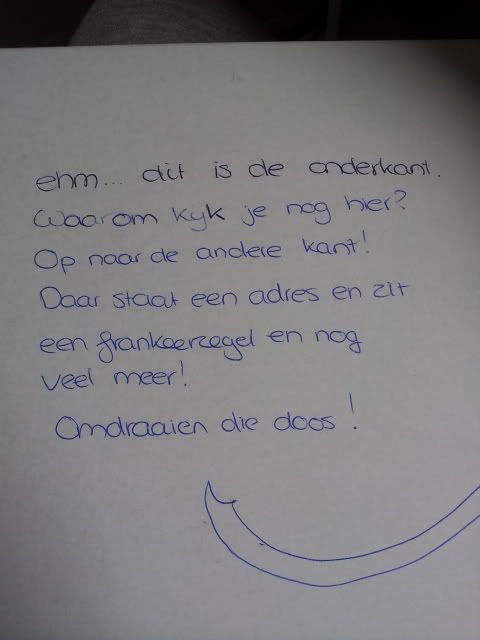 ehm... dit is de onderkant.
Waarom kyk je nog hier?
Op naar de andere kant!
Daar staat een adres en zit
een frankeerzegel en nog
veel meer!
Omdraaien die doos!